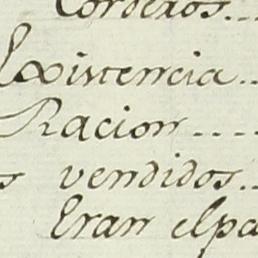 Corderos...
Existencia..
Racion....
s vendidos..
Eran el pa